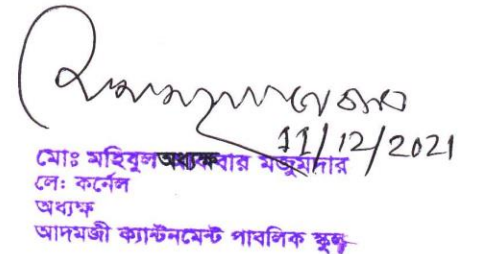 11/12/2021
মোঃ মহিবুল অধ্যক্ষ বার মজুমদার
লে: কর্নেল
অধ্যক্ষ
আদমজী ক্যান্টনমেন্ট পাবলিক স্কুল